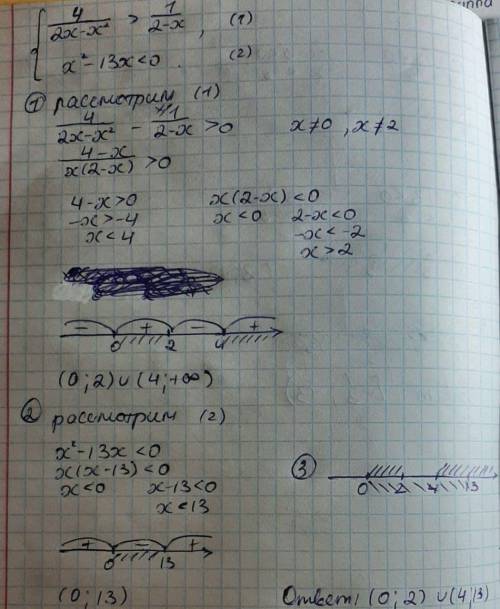 4/(2x-x²) > 1/(2-x), (1)
x²-13x<0. (2)
① рассмотрим (1)
4/(2x-x²) - 1/(2-x) >0 x≠0, x≠2
(4-x)/(x(2-x)) >0
4-x>0 x(2-x)<0
-x>-4 x<0 2-x<0
x<4 -x<-2
x>2
- + - +
0 2 4
(0;2)∪(4;+∞)
② рассмотрим (2)
x²-13x<0
x(x-13)<0
x<0 x-13<0
x<13
+ - +
0 13
(0;13)
③
0 2 4 13
Ответ: (0;2)∪(4;13)